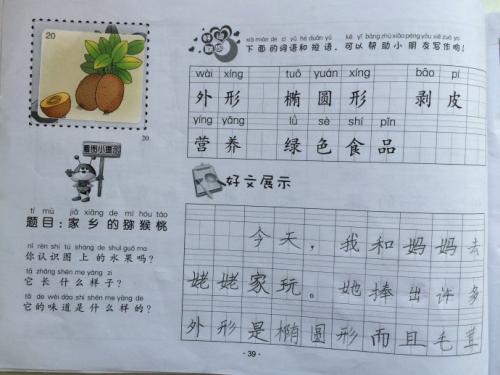 20
20.
看图小提示
tí mù jiā xiāng de mí hóu táo
题目：家乡的猕猴桃
nǐ rèn shi tú shàng de shuǐ guǒ ma
你认识图上的水果吗？
tā zhǎng shén me yàng zi
它长什么样子？
tā de wèi dào shì shén me yàng de
它的味道是什么样的？
xià miàn de cí yǔ hé duǎn yǔ kě yǐ bāng zhù xiǎo péng yǒu xiě zuò yo
下面的词语和短语，可以帮助小朋友写作哟！
wài xíng tuǒ yuán xíng bāo pí
外形 椭圆形 剥皮
yíng yǎng lǜ sè shí pǐn
营养 绿色食品
好文展示
今天，我和妈妈去
姥姥家玩。她捧出许多
外形是椭圆形而且毛茸
·39·